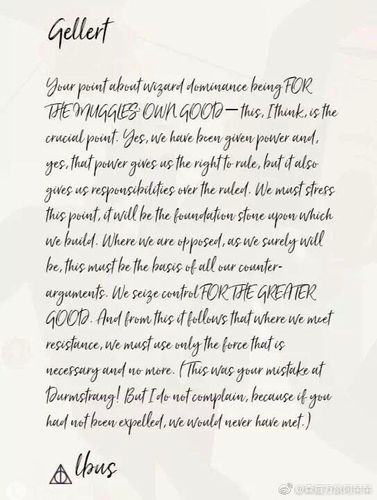 Gellert
Your point about wizard dominance being FOR
THE MUGGLES' OWN GOOD — this, I think, is the
crucial point. Yes, we have been given power and,
yes, that power gives us the right to rule, but it also
gives us responsibilities over the ruled. We must stress
this point, it will be the foundation stone upon which
we build. Where we are opposed, as we surely will
be, this must be the basis of all our counter-
arguments. We seize control FOR THE GREATER
GOOD. And from this it follows that where we meet
resistance, we must use only the force that is
necessary and no more. (This was your mistake at
Durmstrang! But I do not complain, because if you
had not been expelled, we would never have met.)
Albus